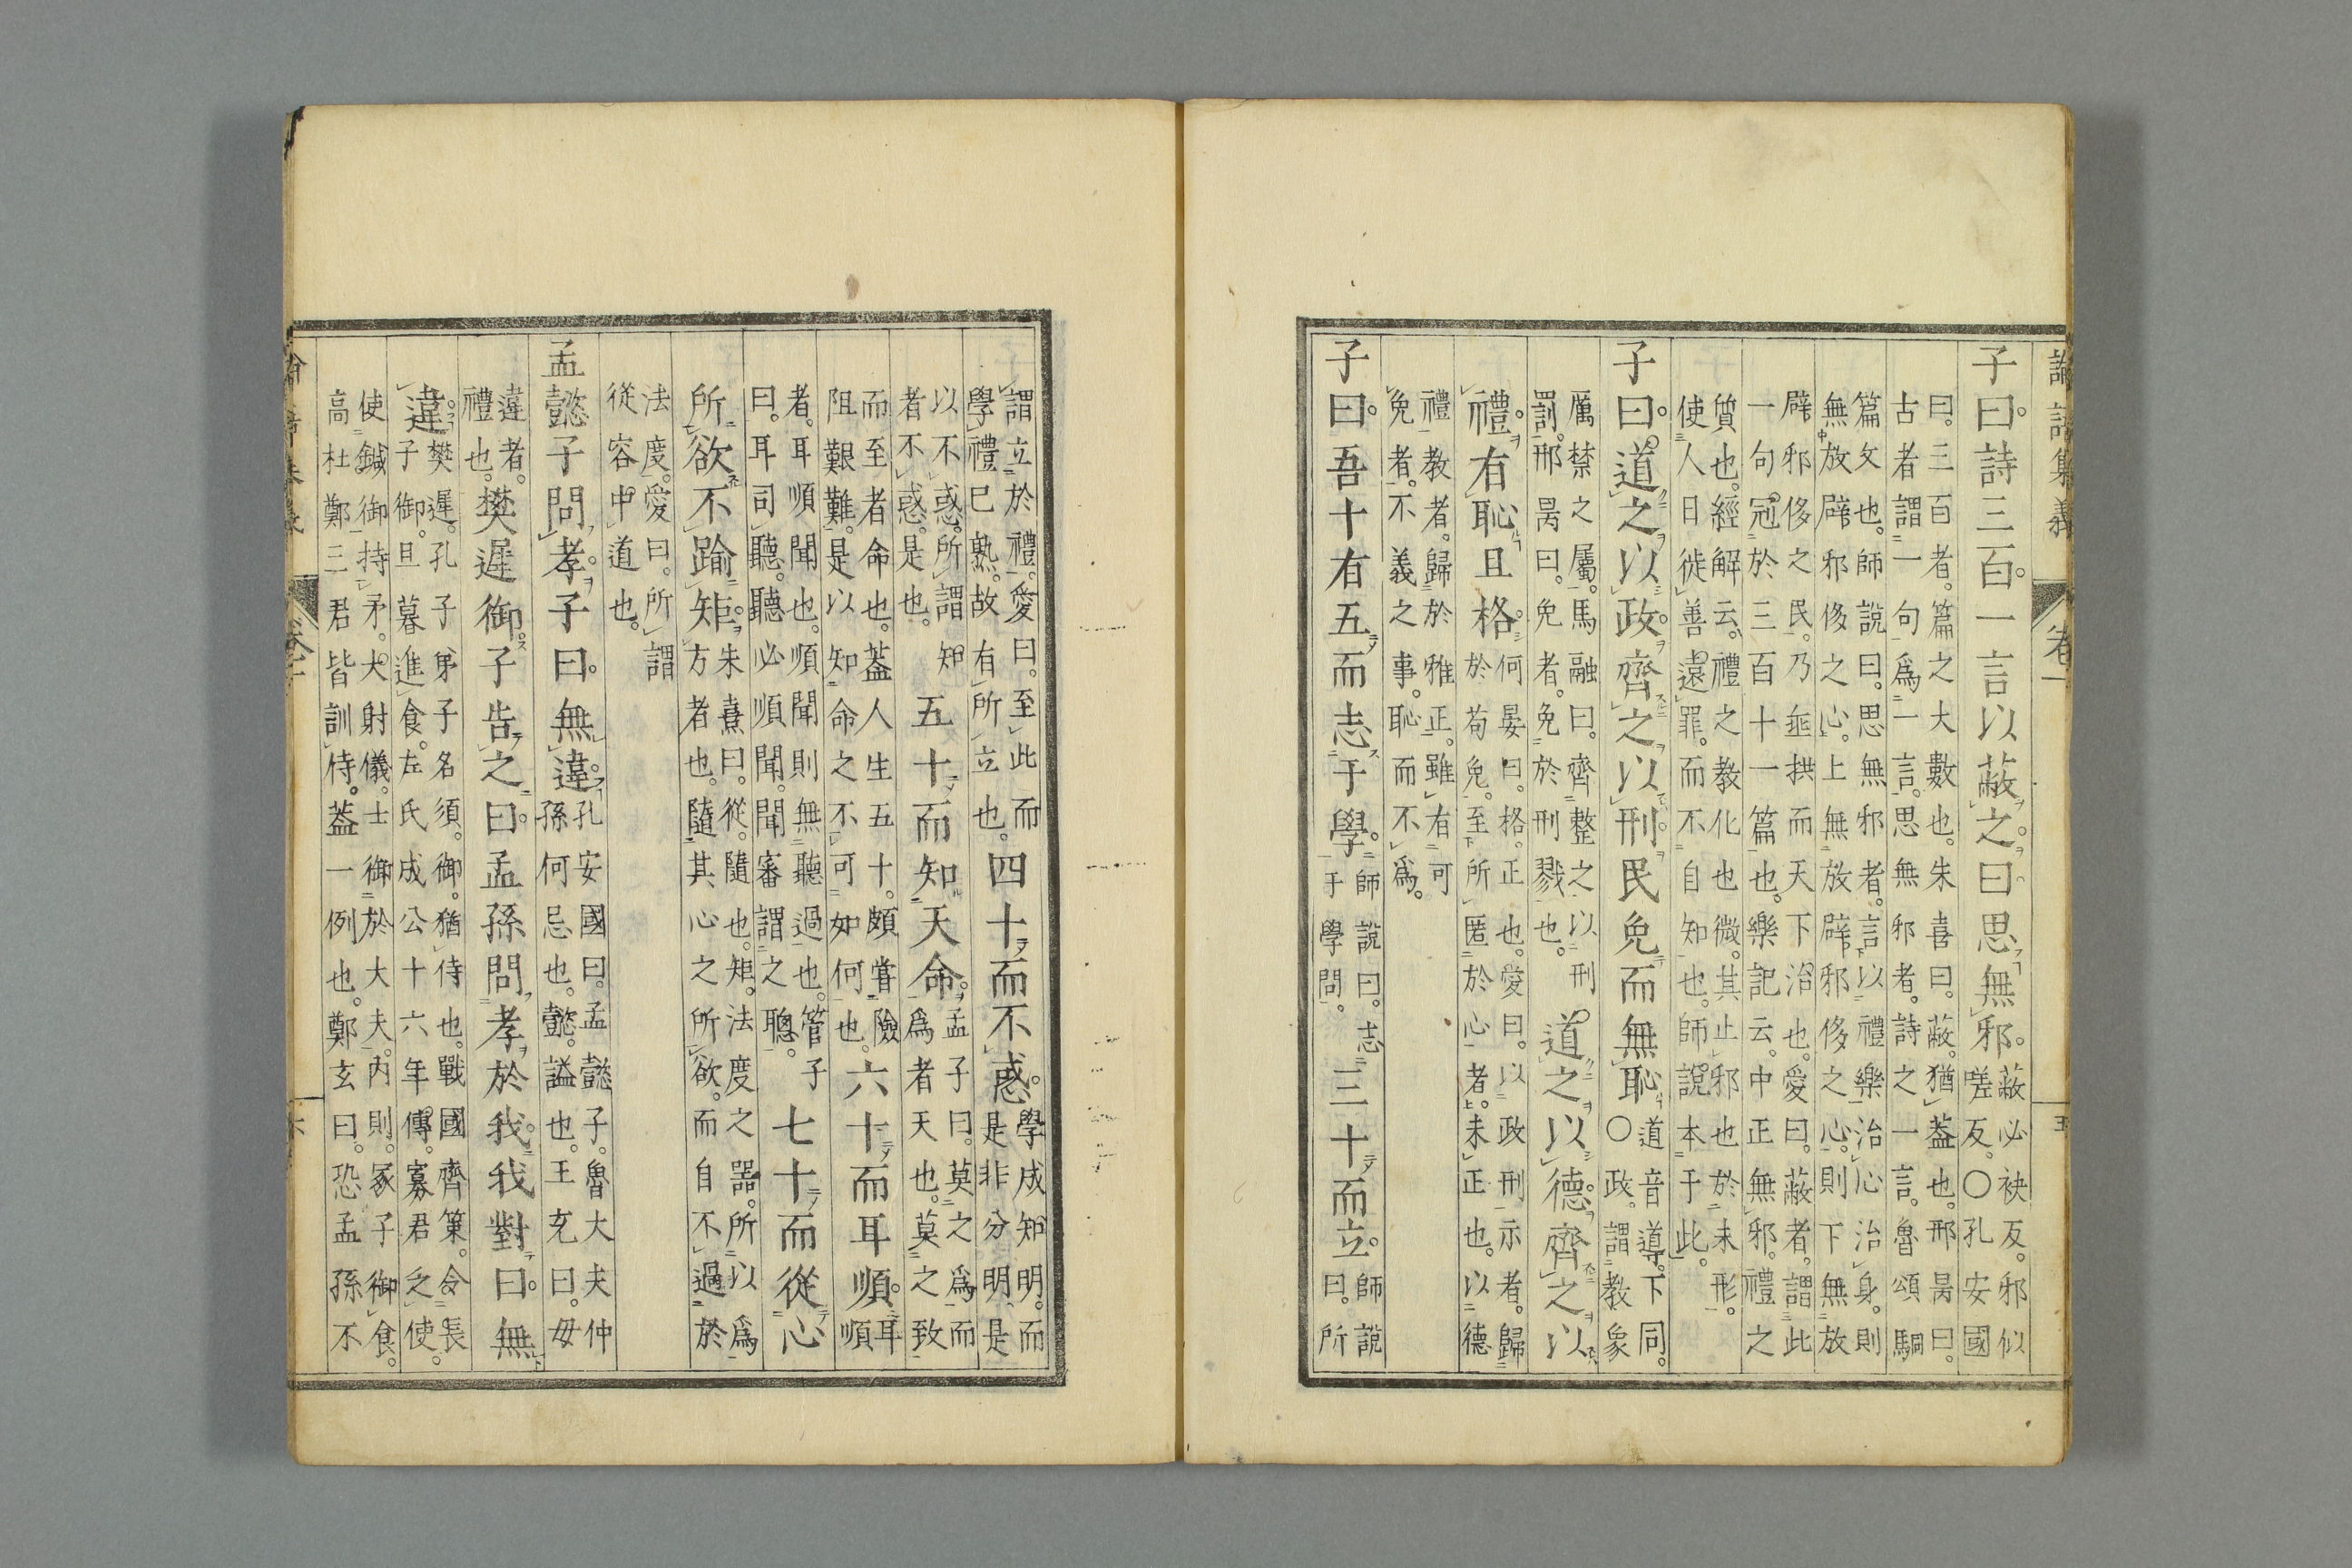 論語集義 卷一 五
子曰。詩三百。一言以蔽之。曰思無邪。蔽必袂反。邪似
嗟反。〇孔安國
曰。三百者。篇之大數也。朱喜曰。蔽。猶蓋也。邢昺曰。
古者謂一句爲一言。思無邪者。詩之一言。魯頌駉
篇文也。師說曰。思無邪者。言以禮樂治心治身。則
無放辟邪侈之心。上無放辟邪侈之心。則下無放
辟邪侈之民。乃垂拱而天下治也。愛曰。蔽者。謂此
一句冠於三百十一篇也。樂記云。中正無邪。禮之
質也。經解云。禮之教化也微。其止邪也於未形。
使人日徙善遠罪。而不自知也。師說本于此。
子曰。道之以政。齊之以刑。民免而無恥。道音導。下同。
〇政。謂教象
厲禁之屬。馬融曰。齊整之以刑
罰。邢昺曰。免者。免於刑戮也。道之以德。齊之以
禮。有恥且格。何晏曰。格。正也。愛曰。以政刑示者。歸
於苟免。至所匿於心者。未正也。以德
禮教者。歸於雅正。雖有可
免者。不義之事。恥而不爲。
子曰。吾十有五而志于學。師說曰。志
于學問。三十而立。師說
曰。所
謂立於禮。愛曰。至此而
學禮已熟。故有所立也。四十而不惑。學成知明。而
是非分明。是
以不惑。所謂知
者不惑。是也。五十而知天命。孟子曰。莫之爲而
爲者天也。莫之致
而至者命也。蓋人生五十。頗嘗險
阻艱難。是以知命之不可如何也。六十而耳順。耳
順
者。耳順聞也。順聞則無聽過也。管子
曰。耳司聽。聽必順聞。聞審謂之聰。七十而從心
所欲。不踰矩。朱熹曰。從。隨也。矩。法度之器。所以爲
方者也。隨其心之所欲。而自不過於
法度。愛曰。所謂
從容中道也。
孟懿子問孝。子曰。無違。孔安國曰。孟懿子。魯大夫仲
孫何忌也。懿。謚也。王充曰。毋
違者。
禮也。樊遲御。子告之曰。孟孫問孝於我。我對曰。無
違。樊遲。孔子弟子名須。御。猶侍也。戰國齊策。令長
子御。旦暮進食。左氏成公十六年傳。寡君之使。
使鍼御持矛。大射儀。士御於大夫。內則。冢子御食。
高杜鄭三君皆訓侍。蓋一例也。鄭玄曰。恐孟孫不